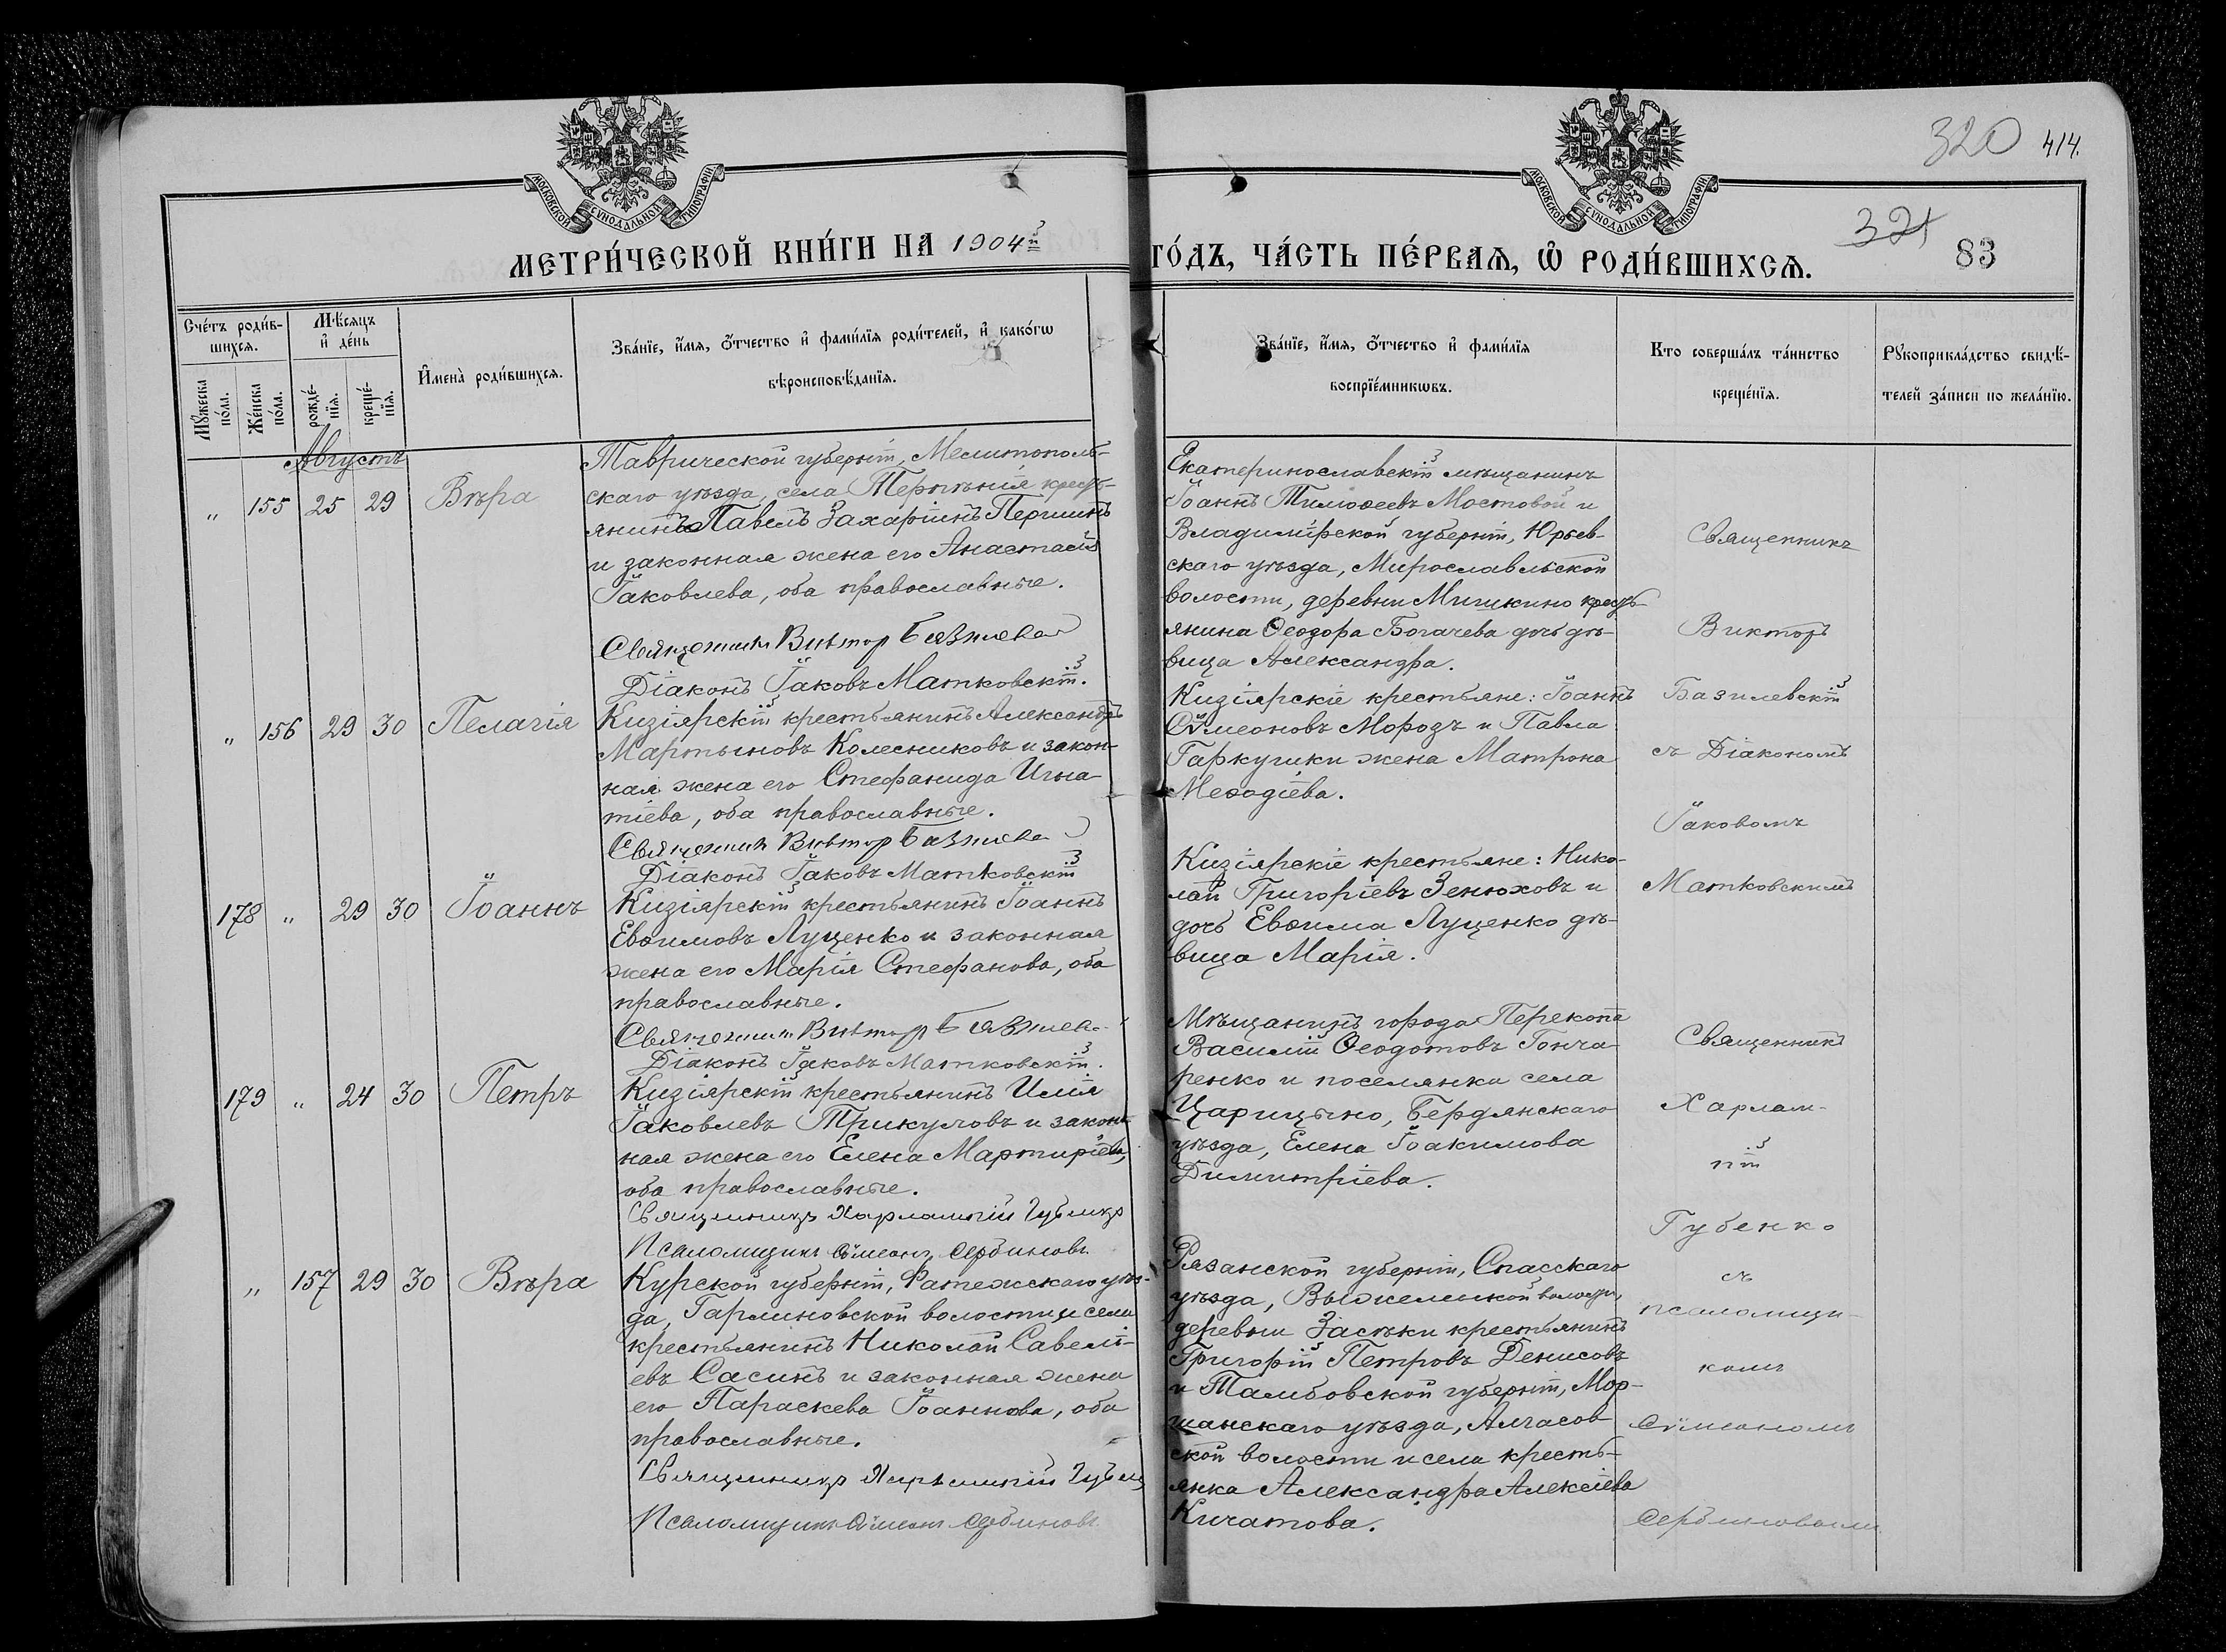 320 414.
321
83
МОСКОВСКОЙ СѴНОДАЛЬНОЙ ТИПОГРАФІИ
МОСКОВСКОЙ СѴНОДАЛЬНОЙ ТИПОГРАФІИ
МЕТРИ́ЧЕСКОЙ КНИ́ГИ НА 1904й ГО́ДЪ, ЧА́СТЬ ПЕ́РВАѦ, Ѽ РОДИ́ВШИХСѦ.
Сче́тъ роди́в-
шихсѧ.
Мꙋ́жеска по́ла.
Же́нска по́ла.
Мѣ́сѧцъ
и҆ де́нь
рожде́-
нїѧ.
креще́-
нїѧ.
И҆мена̀ роди́вшихсѧ.
Зва́нїе, и҆́мѧ, ѻ҆́тчество и҆ фами́лїѧ роди́телей, и҆ како́гѡ
вѣроисповѣ́данїѧ.
Зва́нїе, и҆́мѧ, ѻ҆́тчество и҆ фами́лїѧ
воспрїе́мникѡвъ.
Кто соверша́лъ та́инство
креще́нїѧ.
Рꙋкоприкла́дство свидѣ́-
телей за́писи по жела́нїю.
Августъ
„ 155 25 29 Вѣра
Таврической губерніи, Мелитополь-
скаго уѣзда, села Терпѣнія кресть-
янинъ Павелъ Захаріинъ Першинъ
и законная жена его Анастасія
Іаковлева, оба православные.
Священникъ Виктор Базилев
Діаконъ Іаковъ Матковскій.
Екатеринославскій мѣщанинъ
Іоаннъ Тимоѳеевъ Мостовой и
Владимірской губерніи, Юрьев-
скаго уѣзда, Мирославльской
волости, деревни Мишкино кресть-
янина Ѳеодора Богачева дочь дѣ-
вица Александра.
Священникъ
Викторъ
Базилевскій
съ Діакономъ
Іаковомъ
Матковскимъ
„ 156 29 30 Пелагія
Кизіярскій крестьянинъ Александръ
Мартыновъ Колесниковъ и закон-
ная жена его Стефанида Игна-
тіева, оба православные.
Священникъ Виктор Базилев
Діаконъ Іаковъ Матковскій
Кизіярскіе крестьяне: Іоаннъ
Сѵмеоновъ Морозъ и Павла
Гаркушки жена Матрона
Меѳодіева.
178 „ 29 30 Іоаннъ
Кизіярскій крестьянинъ Іоаннъ
Евѳимовъ Луценко и законная
жена его Марія Стефанова, оба
православные.
Священникъ Виктор Базилев
Діаконъ Іаковъ Матковскій.
Кизіярскіе крестьяне: Нико-
лай Григоріевъ Зенюховъ и
дочь Евѳима Луценко дѣ-
вица Марія.
179 „ 24 30 Петръ
Кизіярскій крестьянинъ Илія
Іаковлевъ Трикуловъ и закон-
ная жена его Елена Мартиріева,
оба православные.
Священникъ Харлампій Губенко
Псаломщикъ Сѵмеонъ Сербиновъ
Мѣщанинъ города Перекопа
Василій Ѳеодотовъ Гонча-
ренко и поселянка села
Царицыно, Бердянскаго
уѣзда, Елена Іоакимова
Димитріева.
Священникъ
Харлам-
пій
Губенко
съ
псаломщи-
комъ
Сѵмеономъ
Сербиновымъ
„ 157 29 30 Вѣра
Курской губерніи, Фатежскаго уѣз-
да, Гарминовской волости и села
крестьянинъ Николай Савелі-
евъ Сасинъ и законная жена
его Параскева Іоаннова, оба
православные.
Священникъ Харлампій Губенко
Псаломщикъ Сѵмеонъ Сербиновъ
Рязанской губерніи, Спасскаго
уѣзда, Выжелеской волости,
деревни Засѣки крестьянинъ
Григорій Петровъ Денисовъ
и Тамбовской губерніи, Мор-
шанскаго уѣзда, Алгасов-
ской волости и села кресть-
янка Александра Алексіева
Кичатова.